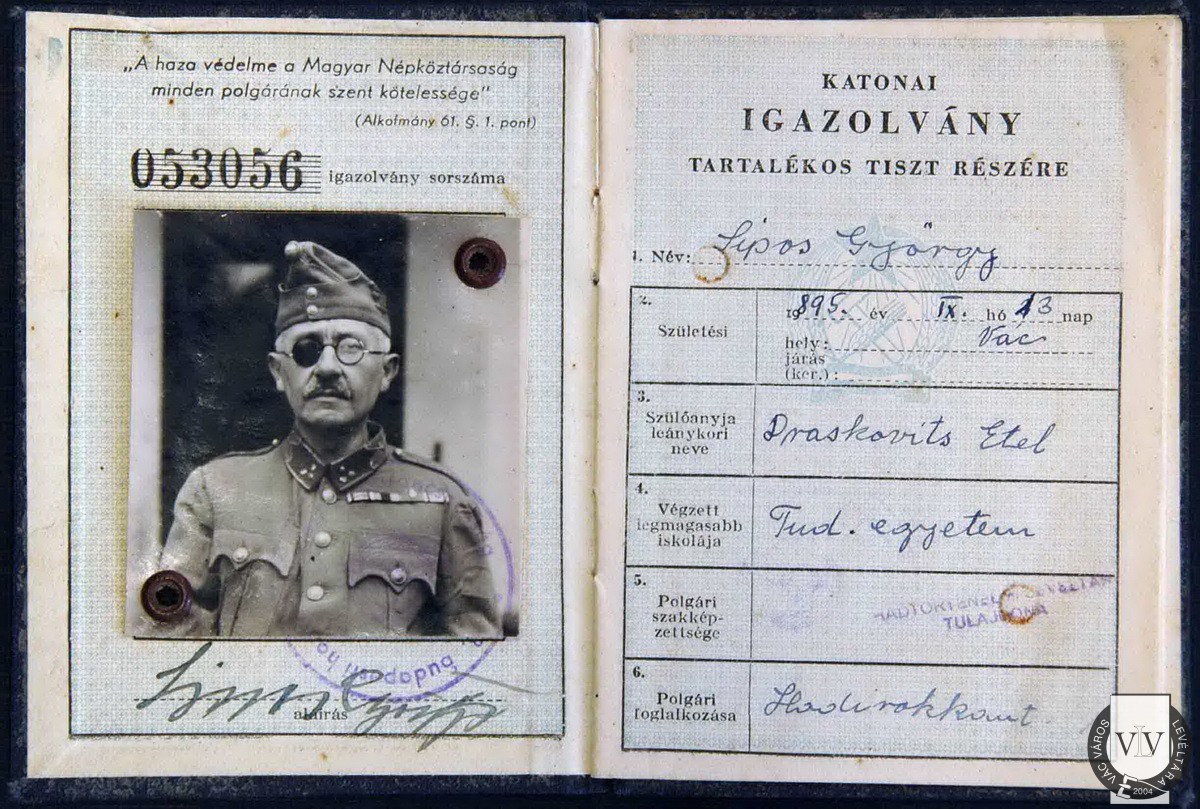 „A haza védelme a Magyar Népköztársaság
minden polgárának szent kötelessége”
(Alkotmány 61. §. 1. pont)
053056 igazolvány sorszáma
aláírás
KATONAI
IGAZOLVÁNY
TARTALÉKOS TISZT RÉSZÉRE
1. Név: Sipos György
2.
Születési
1895. év IX. hó 13 nap
hely: Vác
járás
(ker.):
3.
Szülőanyja
leánykori
neve
Draskovits Etel
4.
Végzett
legmagasabb
iskolája
Tud. egyetem
5.
Polgári
szakkép-
zettsége
HADTÖRTÉNELMI LEVÉLTÁR
TULAJDONA
6.
Polgári
foglalkozása
Hadirokkant
VÁC VÁROS LEVÉLTÁRA
VLV
2004